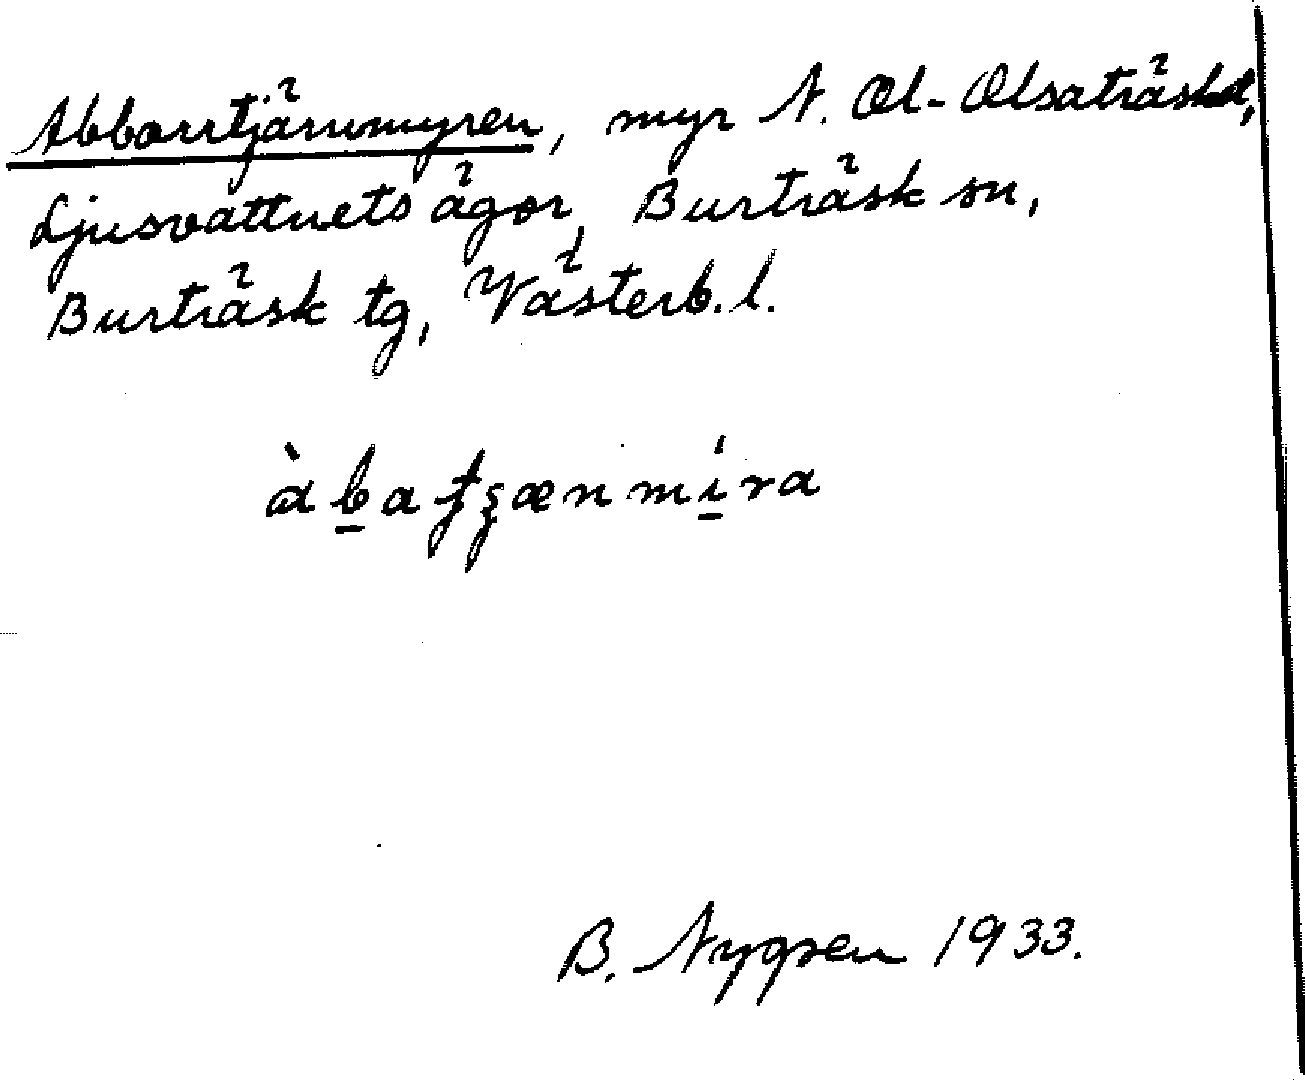 Abborrtjärnmyren, myr N. Ol-Olsaträsket,
Ljusvattnets ägor, Burträsk sn,
Burträsk tg, Västerb. l.
B. Nygren 1933.